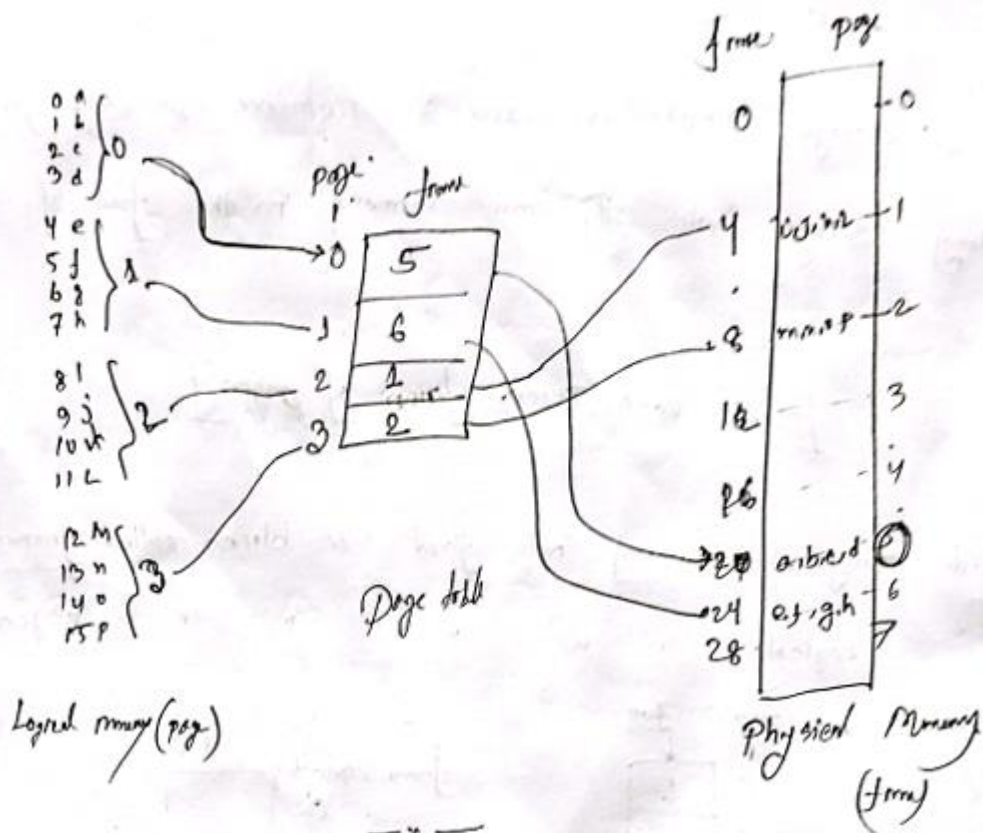 0 a
1 b
2 c
3 d
0
4 e
5 f
6 g
7 h
1
8 i
9 j
10 k
11 L
2
12 M
13 n
14 o
15 p
3
Logical memory (page)
page frame
0 5
1 6
2 1
3 2
Page table
frame page
0 0
4 i,j,k,l 1
8 m,n,o,p 2
12 3
16 4
20 a,b,c,d 5
24 e,f,g,h 6
28 7
Physical Memory
(frame)